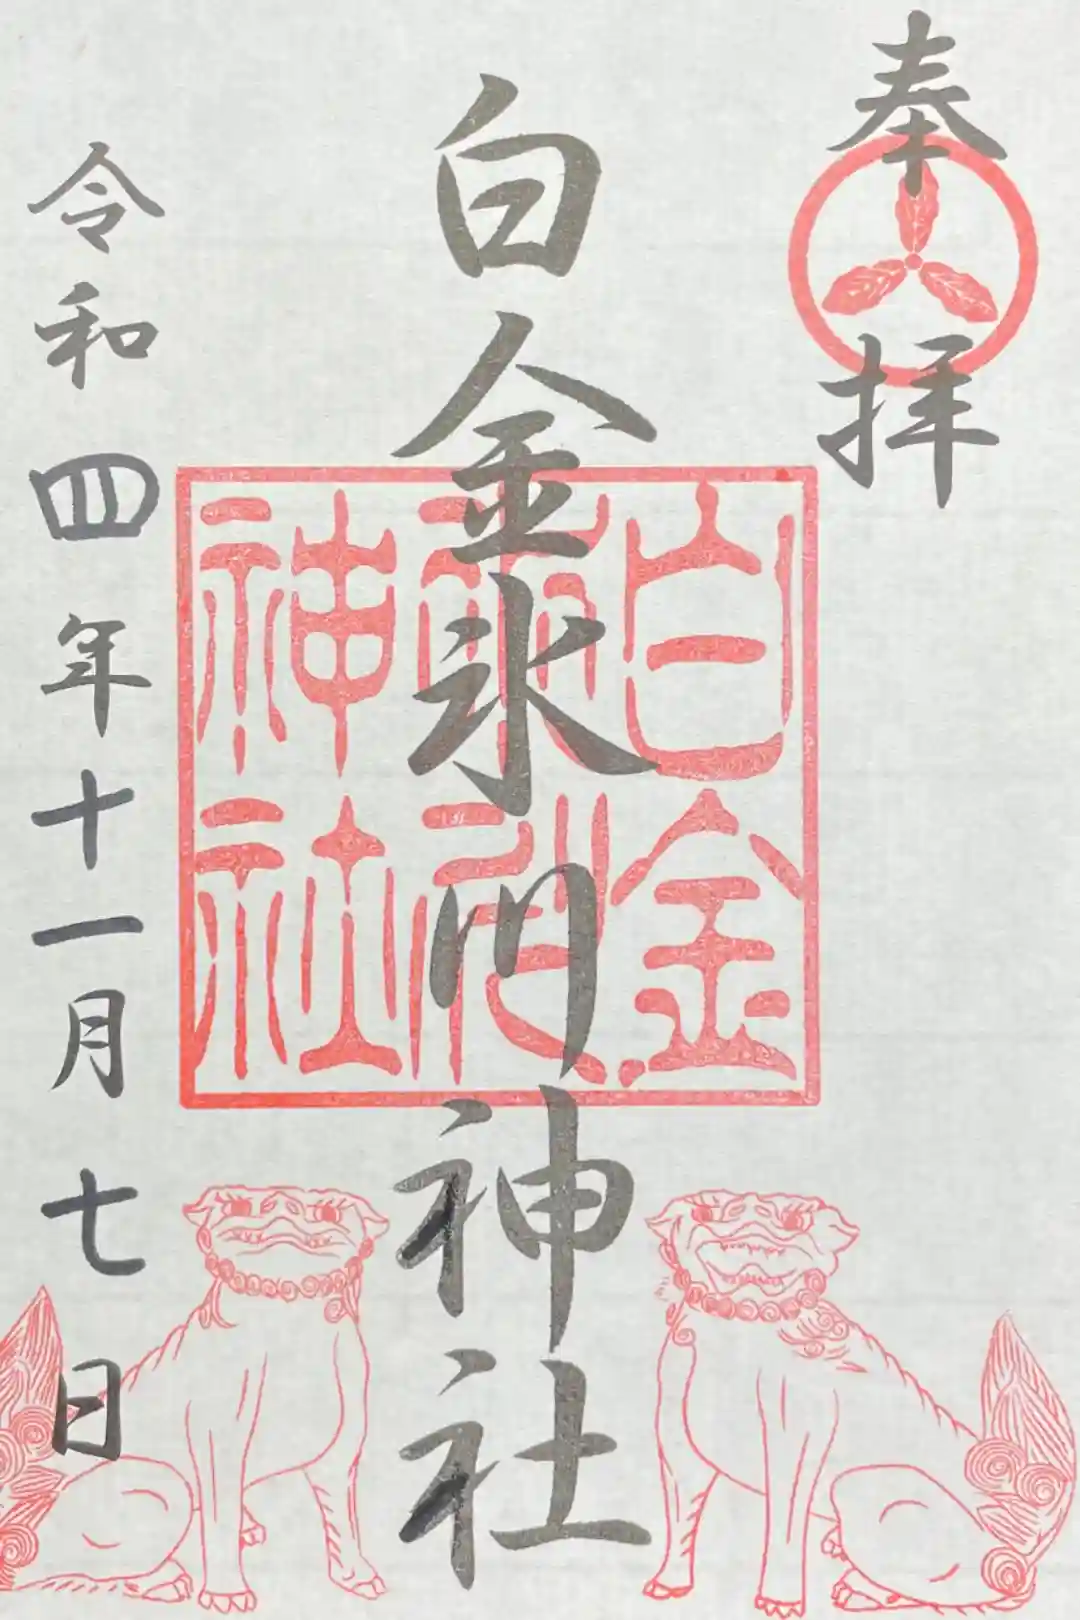 奉拝
白金氷川神社
白金氷川神社
令和四年十一月七日